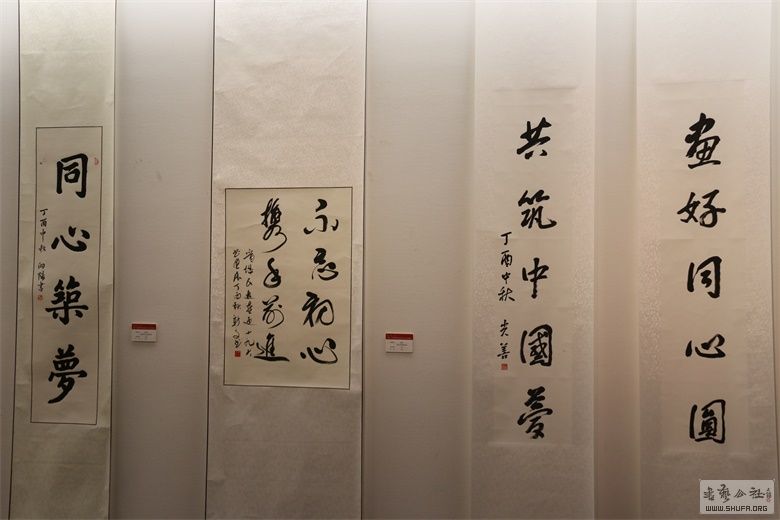 畫好同心圓
共筑中國夢
丁酉中秋 光善
不忘初心
攜手前進
同心築夢
丁酉中秋 向陽書
书艺公社
WWW.SHUFA.ORG